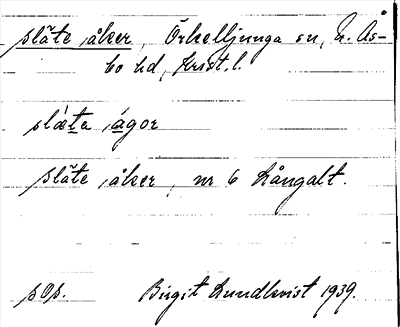 släte åker, Örkelljunga sn, N. Ås-
bo hd, Krist. l.
slæta ágor
släte åker, nr 6 Hångalt.
pOp. Birgit Lundkvist 1939.